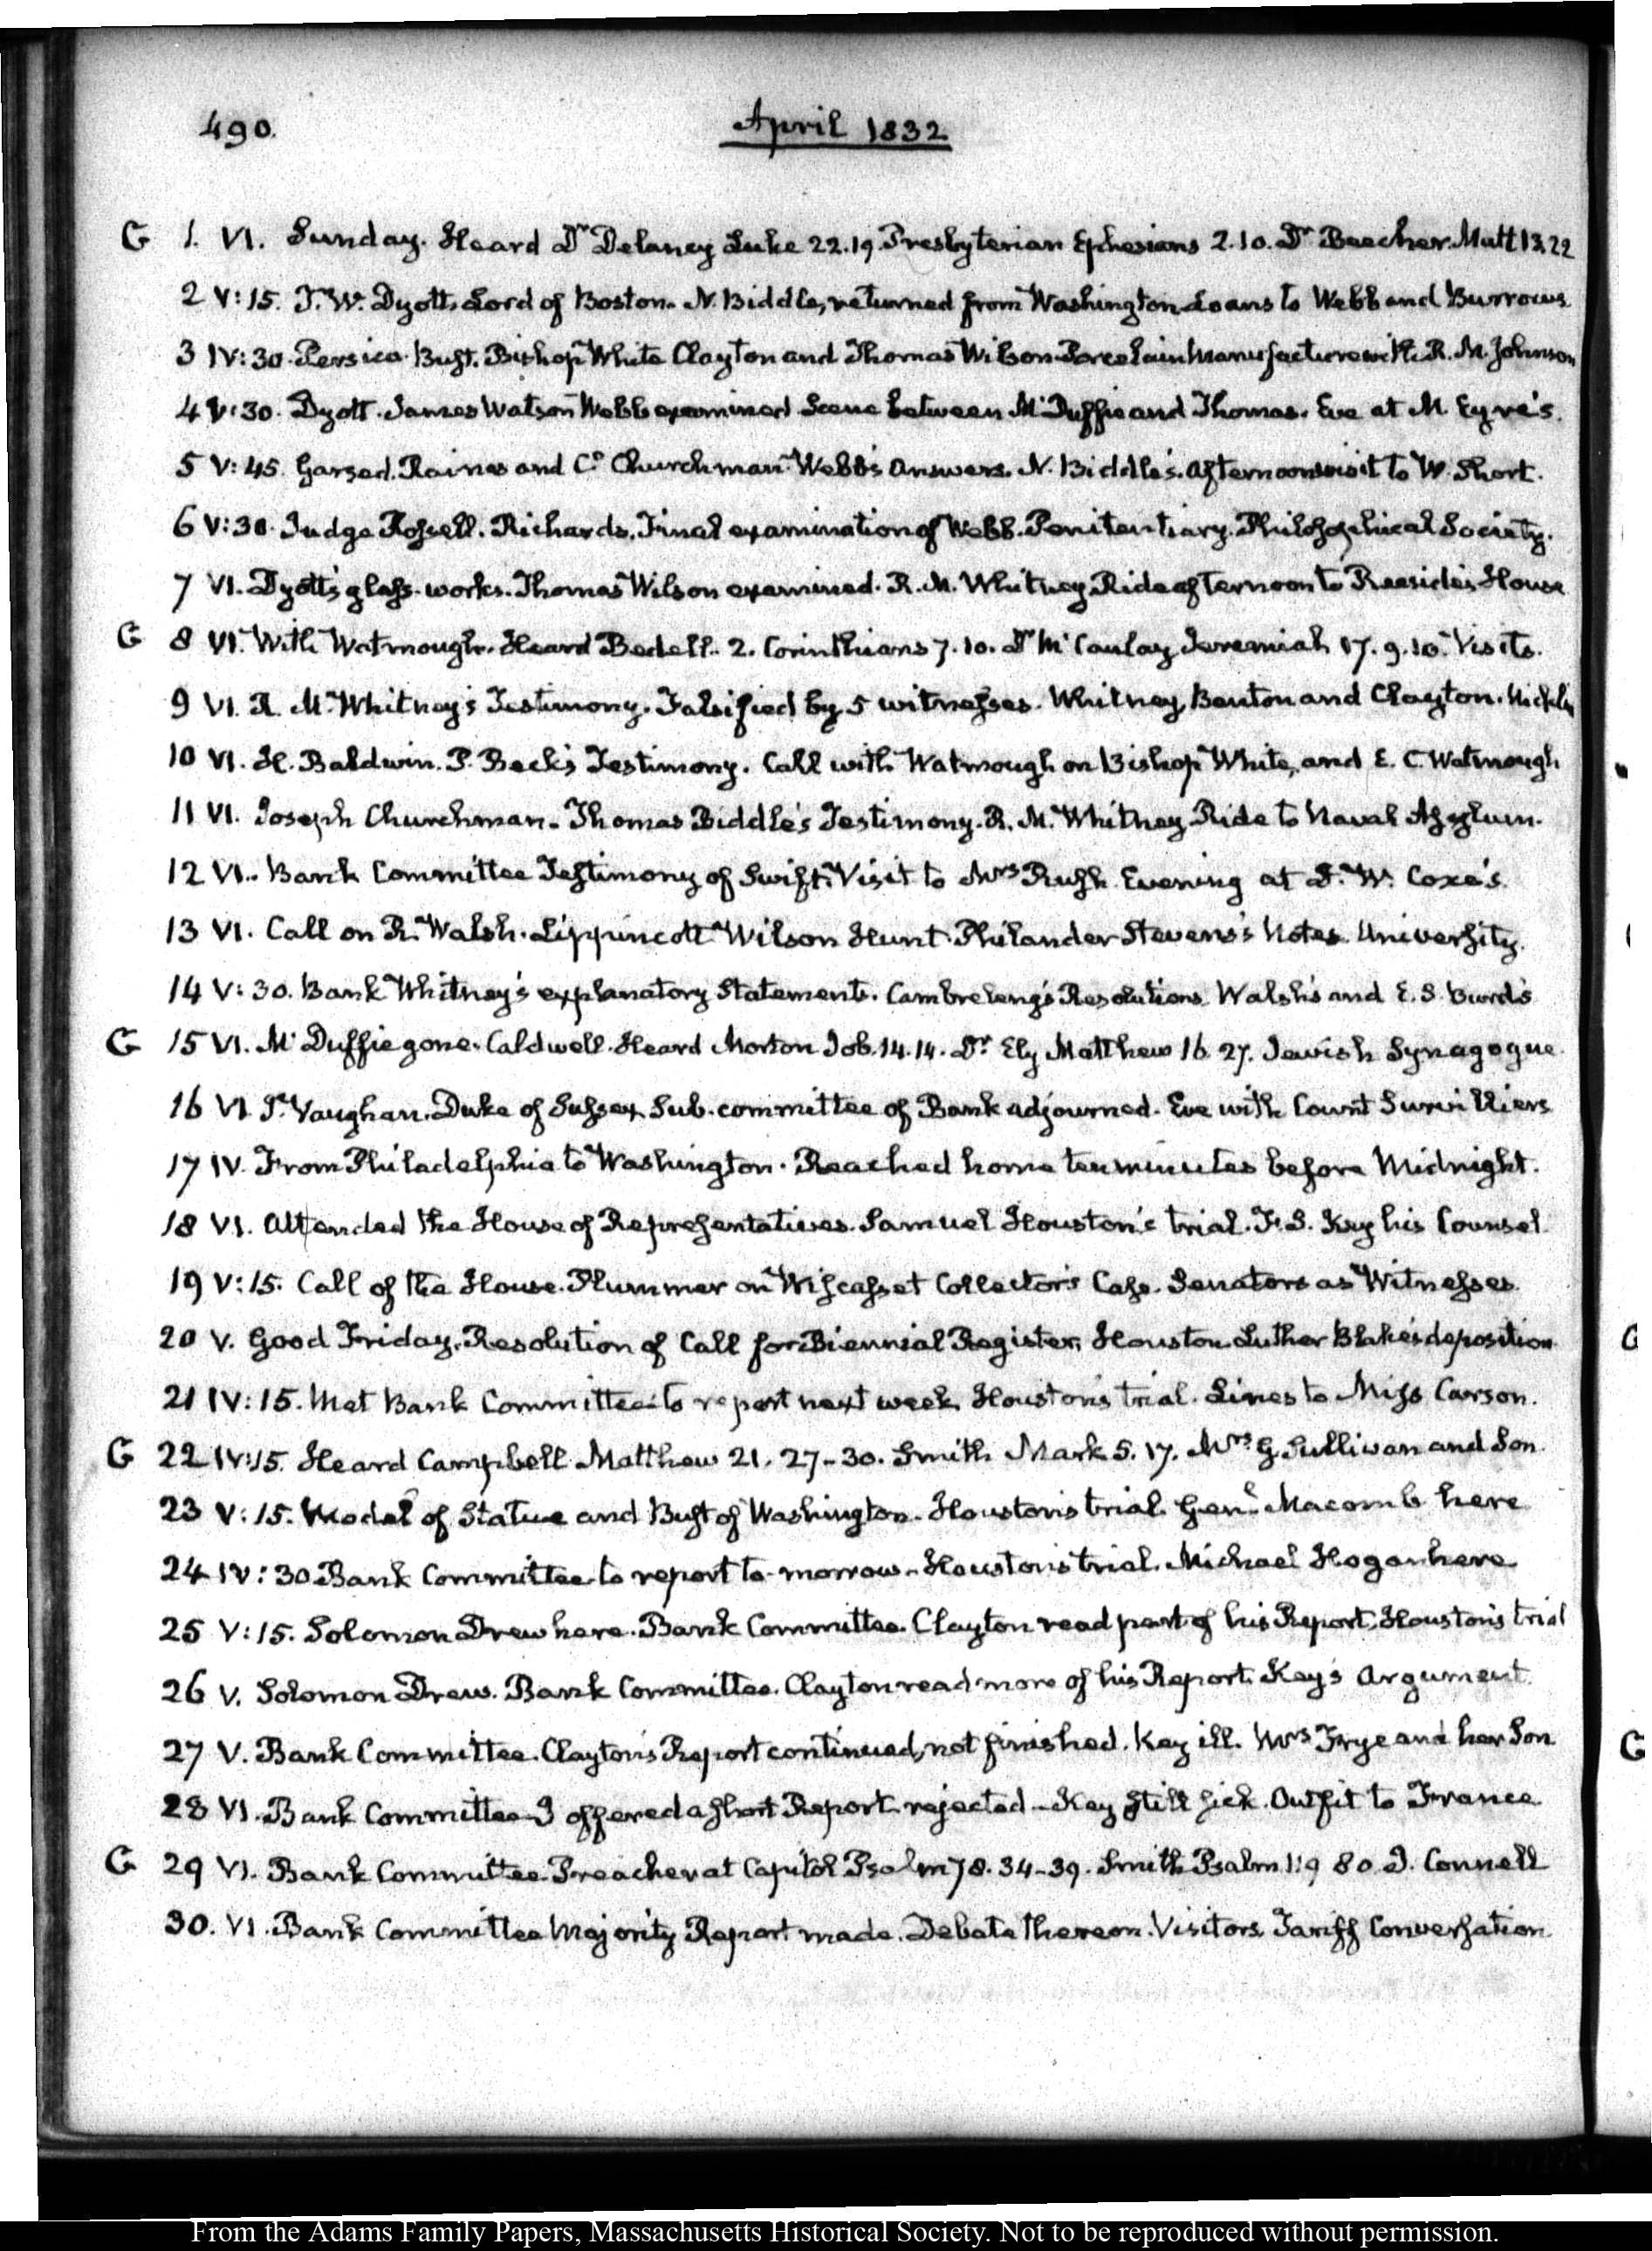 490.
April 1832
G 1. VI. Sunday. Heard Dr Delaney Luke 22.19. Presbyterian Ephesians 2.10. Dr Beecher. Matt 13.22
2 V:15. T. W. Dyott. Lord of Boston. N. Biddle, returned from Washington Loans to Webb and Burrows
3 IV:30. Persico. Bust. Bishop White Clayton and Thomas Wilson Porcelain Manufacture with R. M. Johnson
4 V:30. Dyott. James Watson Webb examined Scene between McDuffie and Thomas. Eve at M. Eyre's.
5 V:45. Garsed. Raines and Co. Churchman. Webb's Answers. N. Biddle's. Afternoon visit to W. Short.
6 V:30. Judge Rossell. Richards. Final examination of Webb. Penitentiary. Philosophical Society.
7 VI. Dyott's glass-works. Thomas Wilson examined. R. M. Whitney Ride afternoon to Reeside's House
G 8 VI. With Watmough. Heard Bedell. 2. Corinthians 7.10. Dr McCaulay Jeremiah 17.9.10. Visits.
9 VI. R. M. Whitney's Testimony. Falsified by 5 witnesses. Whitney, Benton and Clayton. Nicklin
10 VI. H. Baldwin. P. Beck's Testimony. Call with Watmough on Bishop White, and E. C. Watmough
11 VI. Joseph Churchman. Thomas Biddle's Testimony. R. M. Whitney Ride to Naval Asylum.
12 VI. Bank Committee Testimony of Swift. Visit to Mrs Rush. Evening at J. W. Coxe's.
13 VI. Call on R. Walsh. Lippincott Wilson Hunt. Philander Stevens's Notes. University.
14 V:30. Bank Whitney's explanatory Statement. Cambreleng's Resolutions Walsh's and E. S. Burd's
G 15 VI. McDuffie gone. Caldwell. Heard Morton Job. 14.14. Dr. Ely Matthew 16.27. Jewish Synagogue.
16 VI. J. Vaughan. Duke of Sussex Sub-committee of Bank adjourned. Eve with Count Survilliers
17 IV. From Philadelphia to Washington. Reached home ten minutes before Midnight.
18 VI. Attended the House of Representatives. Samuel Houston's trial. F. S. Key his Counsel
19 V:15. Call of the House. Plummer on Wiscasset Collector's Case. Senators as Witnesses.
20 V. Good Friday. Resolution of Call for Biennial Register, Houston. Luther Blake's deposition
21 IV:15. Met Bank Committee to report next week Houston's trial. Lines to Miss Carson.
G 22 IV:15. Heard Campbell Matthew 21. 27-30. Smith Mark 5.17. Mrs G. Sullivan and Son.
23 V:15. Model of Statue and Bust of Washington. Houston's trial. Genl. Macomb here
24 IV:30 Bank Committee to report to-morrow. Houston's trial. Michael Hogan here
25 V:15. Solomon Drew here. Bank Committee. Clayton read part of his Report, Houston's trial
26 V. Solomon Drew. Bank Committee. Clayton read more of his Report. Key's Argument.
27 V. Bank Committee. Clayton's Report continued, not finished. Key ill. Mrs Frye and her Son
28 VI. Bank Committee I offered a short Report. rejected. Key still sick. Outfit to France
G 29 VI. Bank Committee. Preacher at Capitol Psalm 78. 34-39. Smith Psalm 119 80. J. Connell
30. VI. Bank Committee Majority Report made. Debate thereon. Visitors. Tariff Conversation
From the Adams Family Papers, Massachusetts Historical Society. Not to be reproduced without permission.